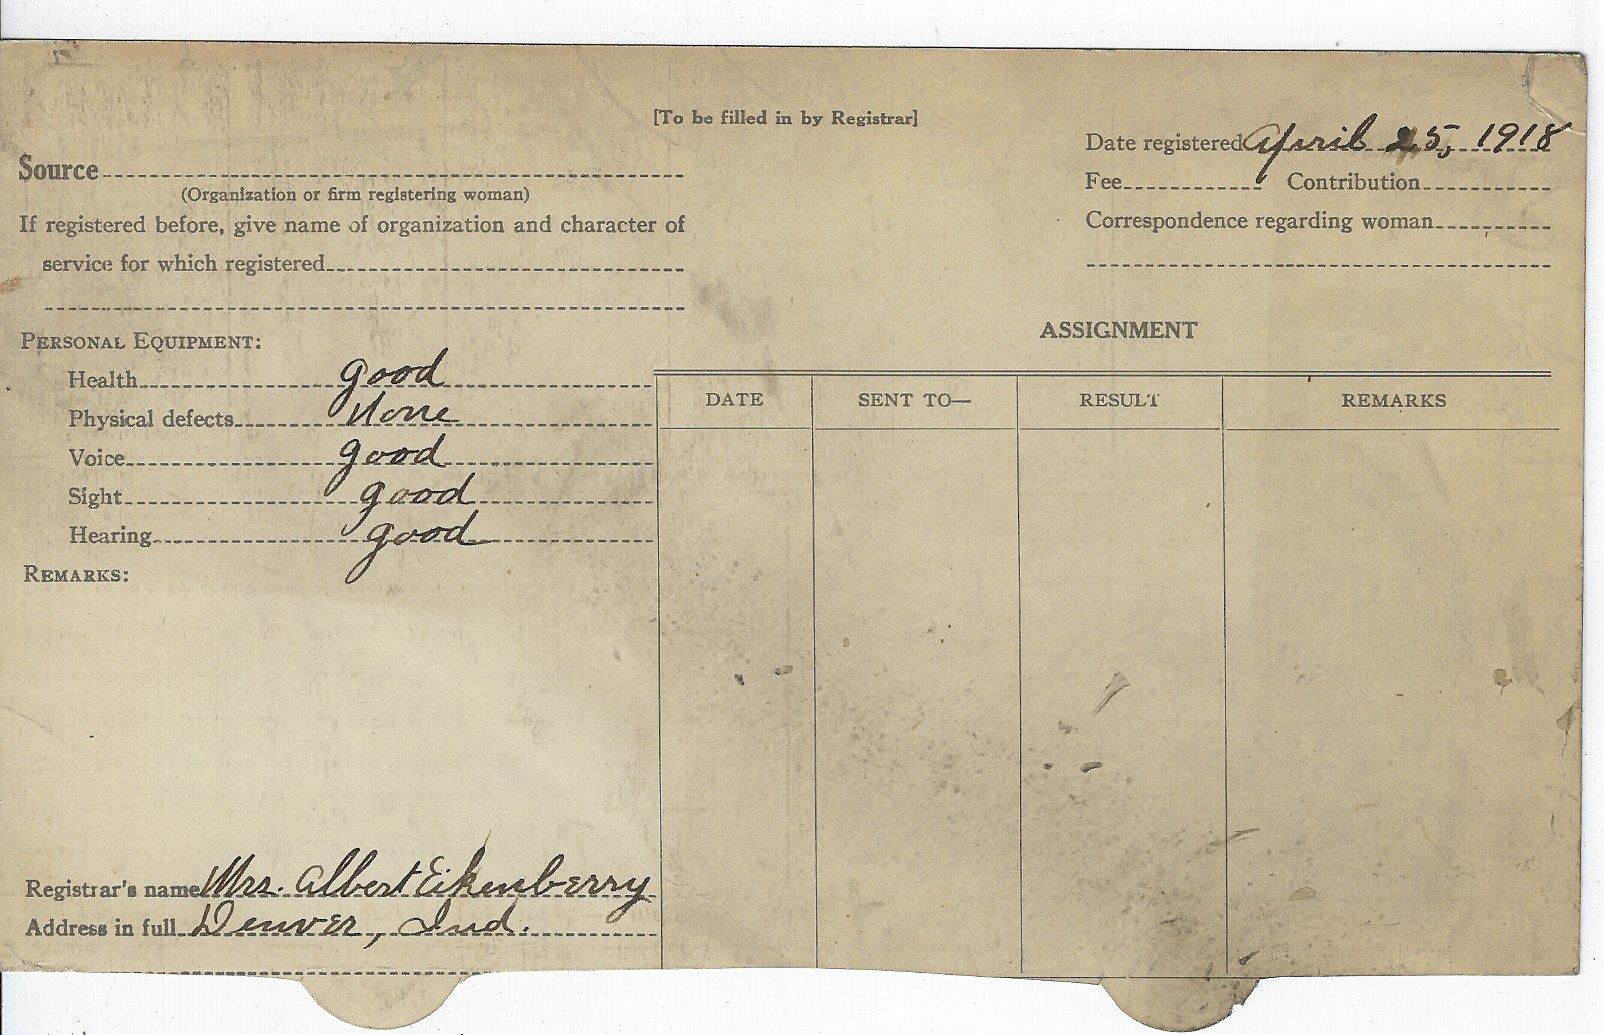 [To be filled in by Registrar]
Date registered April 25, 1918
Source
(Organization or firm registering woman)
Fee Contribution
If registered before, give name of organization and character of
Correspondence regarding woman
service for which registered
PERSONAL EQUIPMENT:
ASSIGNMENT
Health good
Physical defects None
Voice good
Sight good
Hearing good
DATE SENT TO— RESULT REMARKS
REMARKS:
Registrar's name Mrs. Albert Eikenberry
Address in full Denver, Ind.